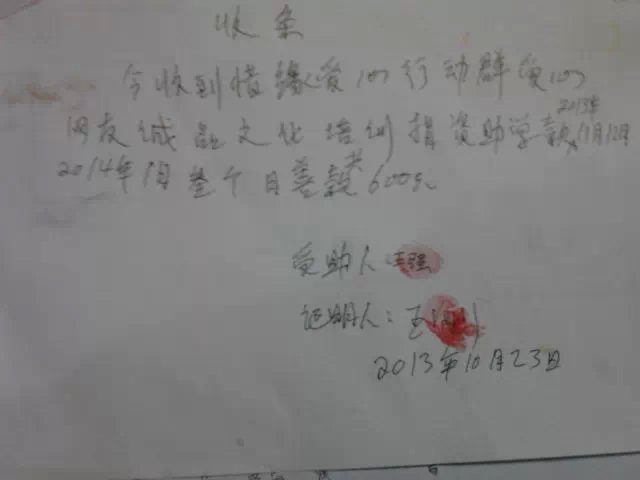 收条
今收到惜缘爱心行动群爱心
网友诚 文化培训捐资助学款2013年11月12月
2014年1月 个月善款共600元
受助人 王强
证明人：王
2013年10月23日